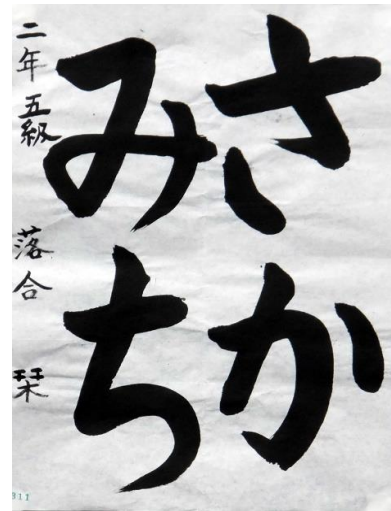 さか
みち
二年 五級 落合 栞
911